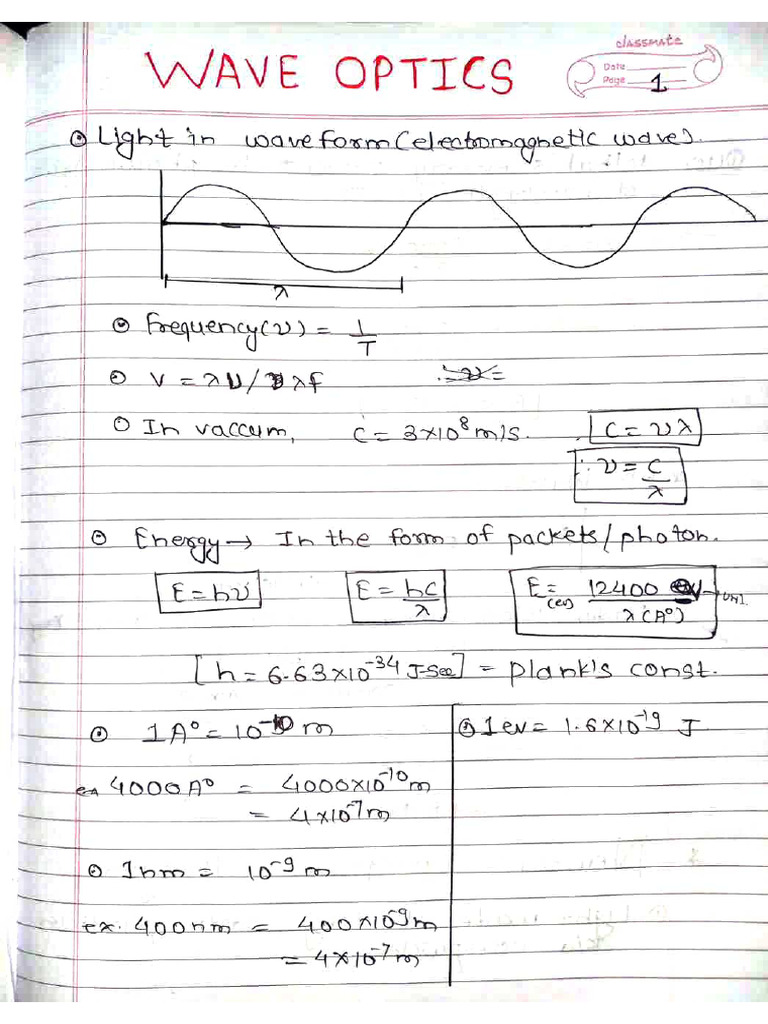 WAVE OPTICS
classmate
Date
Page 1
Light in waveform (electromagnetic wave).
λ
Frequency(ν) = 1/T
v = λν / λf
In vaccum, c = 3×10⁸ m/s. C = νλ
∴ ν = C/λ
Energy → In the form of packets/photon.
E = hν E = hc/λ E(ev) = 12400 / λ(A°)
[h = 6.63×10⁻³⁴ J-Sec] = plank's const.
1A° = 10⁻¹⁰ m
1ev = 1.6×10⁻¹⁹ J
ex 4000A° = 4000×10⁻¹⁰ m
= 4×10⁻⁷ m
1nm = 10⁻⁹ m
ex. 400nm = 400×10⁻⁹ m
= 4×10⁻⁷ m